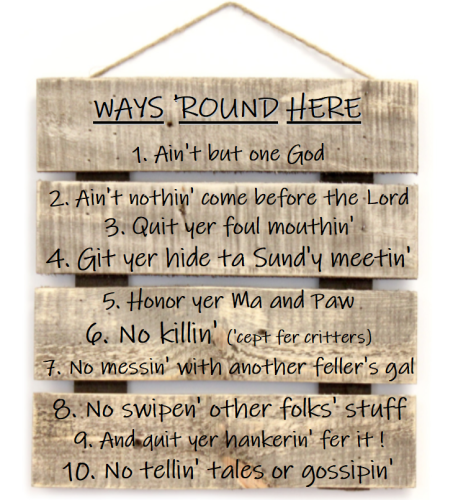 WAYS 'ROUND HERE
1. Ain't but one God
2. Ain't nothin' come before the Lord
3. Quit yer foul mouthin'
4. Git yer hide ta Sund'y meetin'
5. Honor yer Ma and Paw
6. No killin' ('cept fer critters)
7. No messin' with another feller's gal
8. No swipen' other folks' stuff
9. And quit yer hankerin' fer it !
10. No tellin' tales or gossipin'